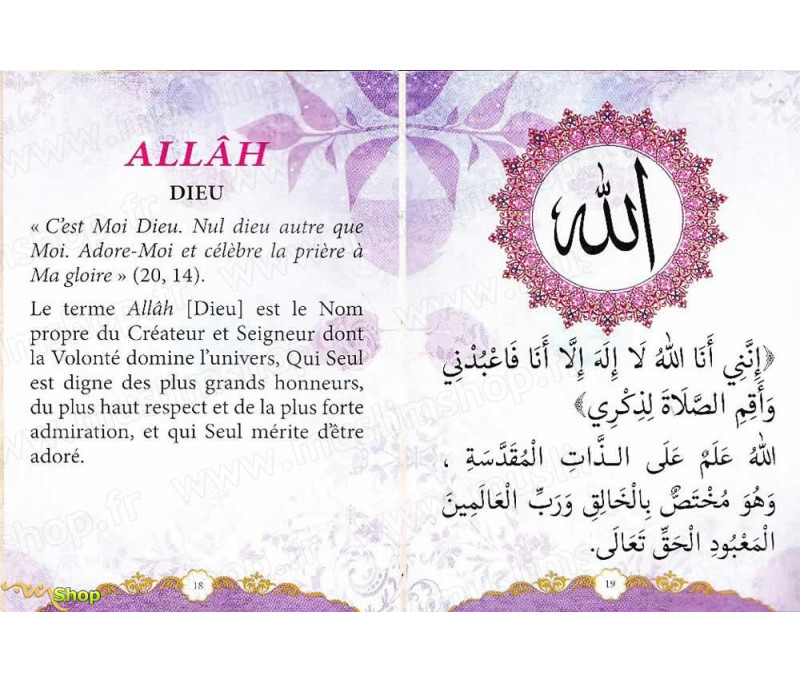 ALLÂH
DIEU
« C'est Moi Dieu. Nul dieu autre que
Moi. Adore-Moi et célèbre la prière à
Ma gloire » (20, 14).
Le terme Allâh [Dieu] est le Nom
propre du Créateur et Seigneur dont
la Volonté domine l'univers, Qui Seul
est digne des plus grands honneurs,
du plus haut respect et de la plus forte
admiration, et qui Seul mérite d'être
adoré.
18
Shop
الله
﴿إِنَّنِي أَنَا اللهُ لَا إِلَهَ إِلَّا أَنَا فَاعْبُدْنِي
وَأَقِمِ الصَّلَاةَ لِذِكْرِي﴾
اللهُ عَلَمٌ عَلَى الـذَّاتِ الْمُقَدَّسَةِ ،
وَهُوَ مُخْتَصٌّ بِالْخَالِقِ وَرَبِّ الْعَالَمِينَ
الْمَعْبُودِ الْحَقِّ تَعَالَى.
19
www.muslimshop.fr